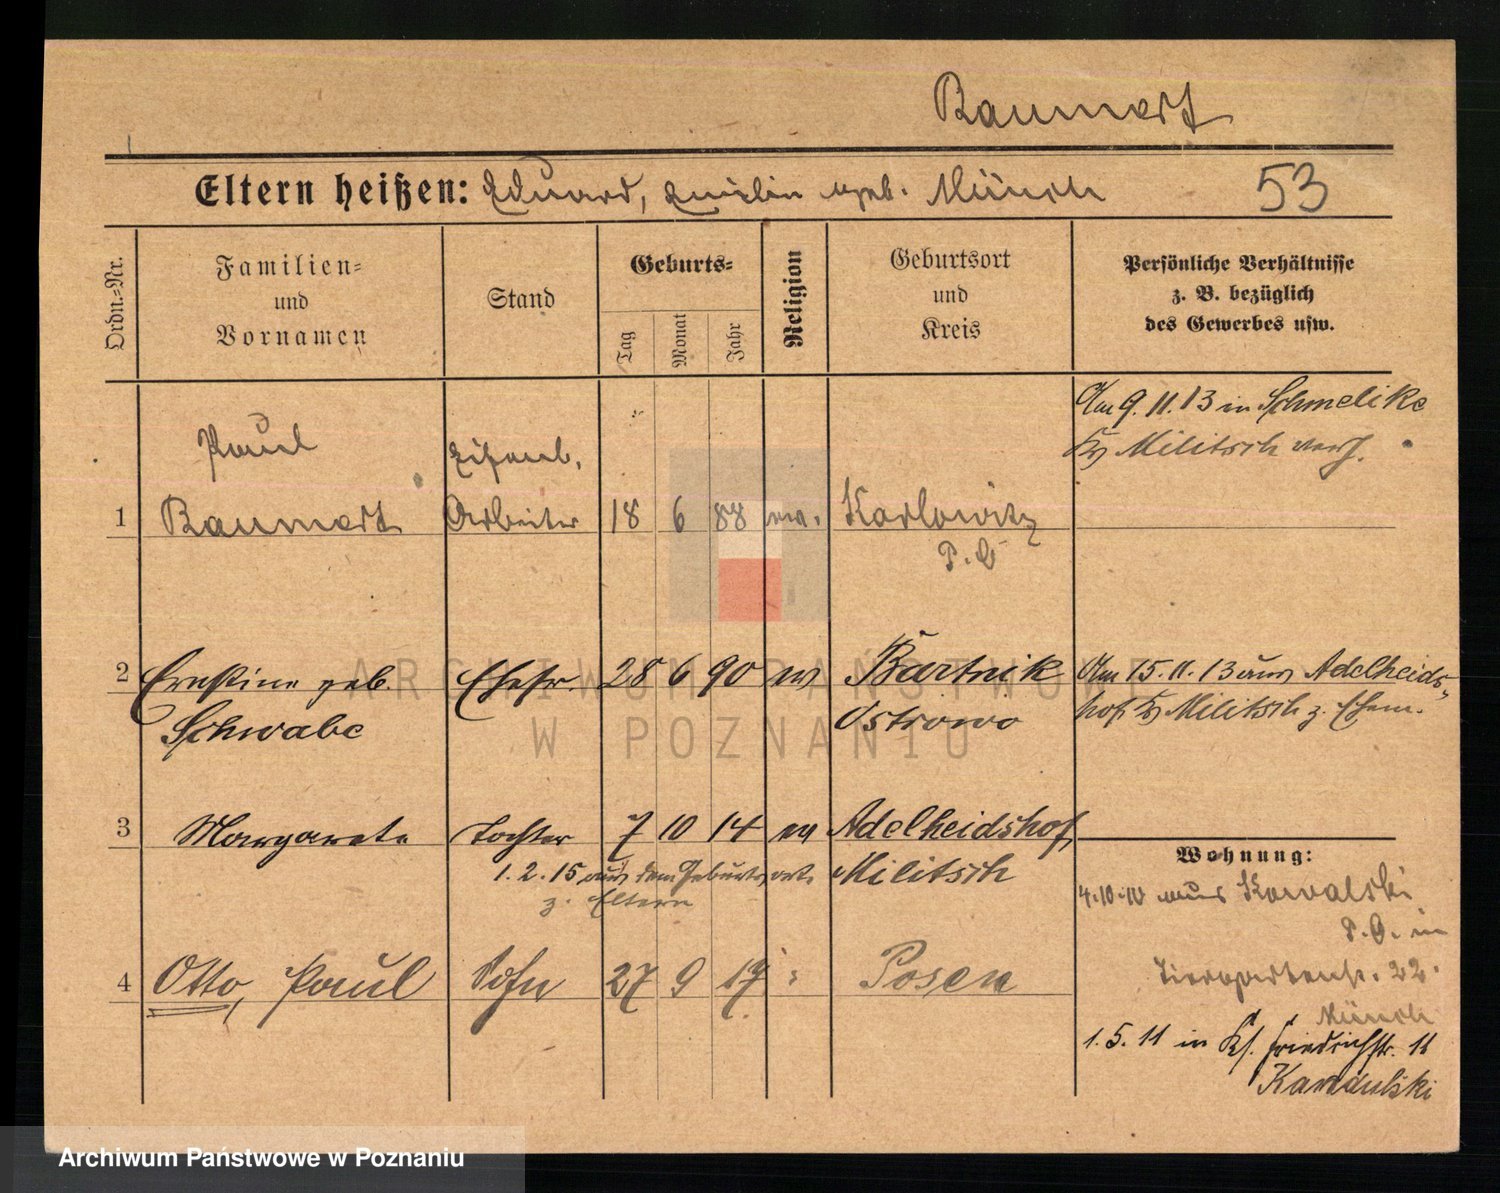 Baumert
Eltern heißen: Eduard, Emilie geb. Münch 53
Ordn.-Nr.
Familien-
und
Vornamen
Stand
Geburts-
Tag
Monat
Jahr
Religion
Geburtsort
und
Kreis
Persönliche Verhältnisse
z. B. bezüglich
des Gewerbes usw.
Am 9.11.13 in Schmelike
Militsch verh.
Paul Eisenb.
1 Baumert Arbeiter 18 6 88 ev. Karlowitz
P. O
2 Ernstine geb. Ehefr. 28 6 90 ev Bartnik Am 15.11.13 aus Adelheids-
Schwabe Ostrowo hof Militsch z. Ehem.
3 Margarete Tochter 7 10 14 ev Adelheidshof
1.2.15 aus dem Geburtsort Militsch
z. Eltern
4 Otto, Paul Sohn 27 9 17 " Posen
Wohnung:
4.10.10 aus Kowalski
P. O. in
Tiergartenstr. 22.
Münch
1.5.11 in Friedrichstr. 11
Kandulski
ARCHIWUM PAŃSTWOWE
W POZNANIU
Archiwum Państwowe w Poznaniu